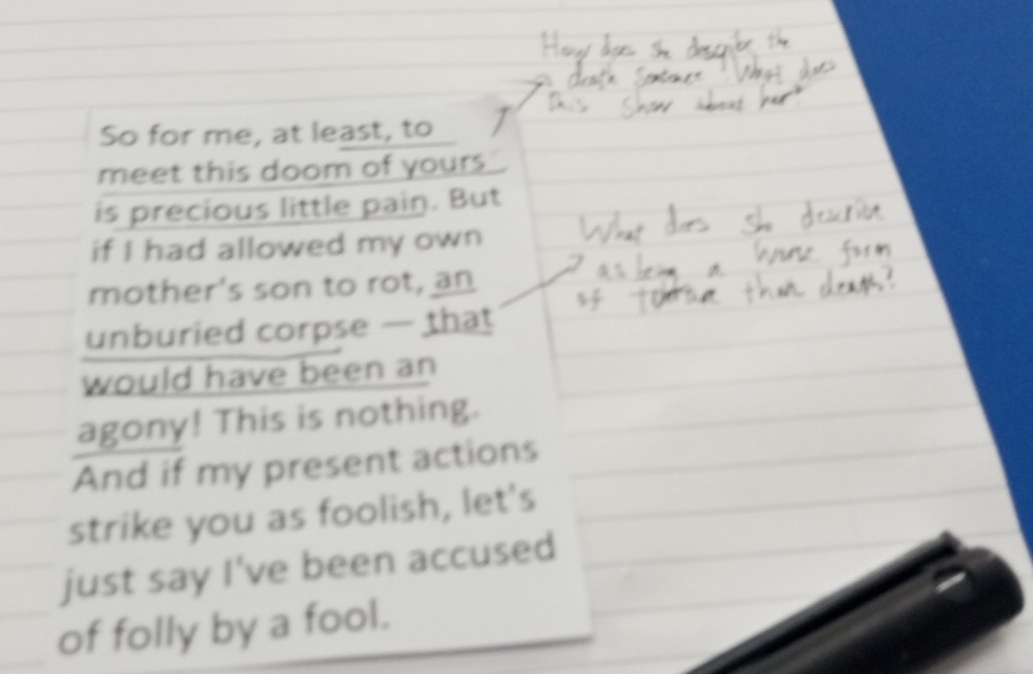 How does she describe the
death sentence? What does
this show about her?
So for me, at least, to
meet this doom of yours
is precious little pain. But
if I had allowed my own
mother's son to rot, an
unburied corpse — that
would have been an
agony! This is nothing.
And if my present actions
strike you as foolish, let's
just say I've been accused
of folly by a fool.
What does she describe
as being a worse form
of torture than death?